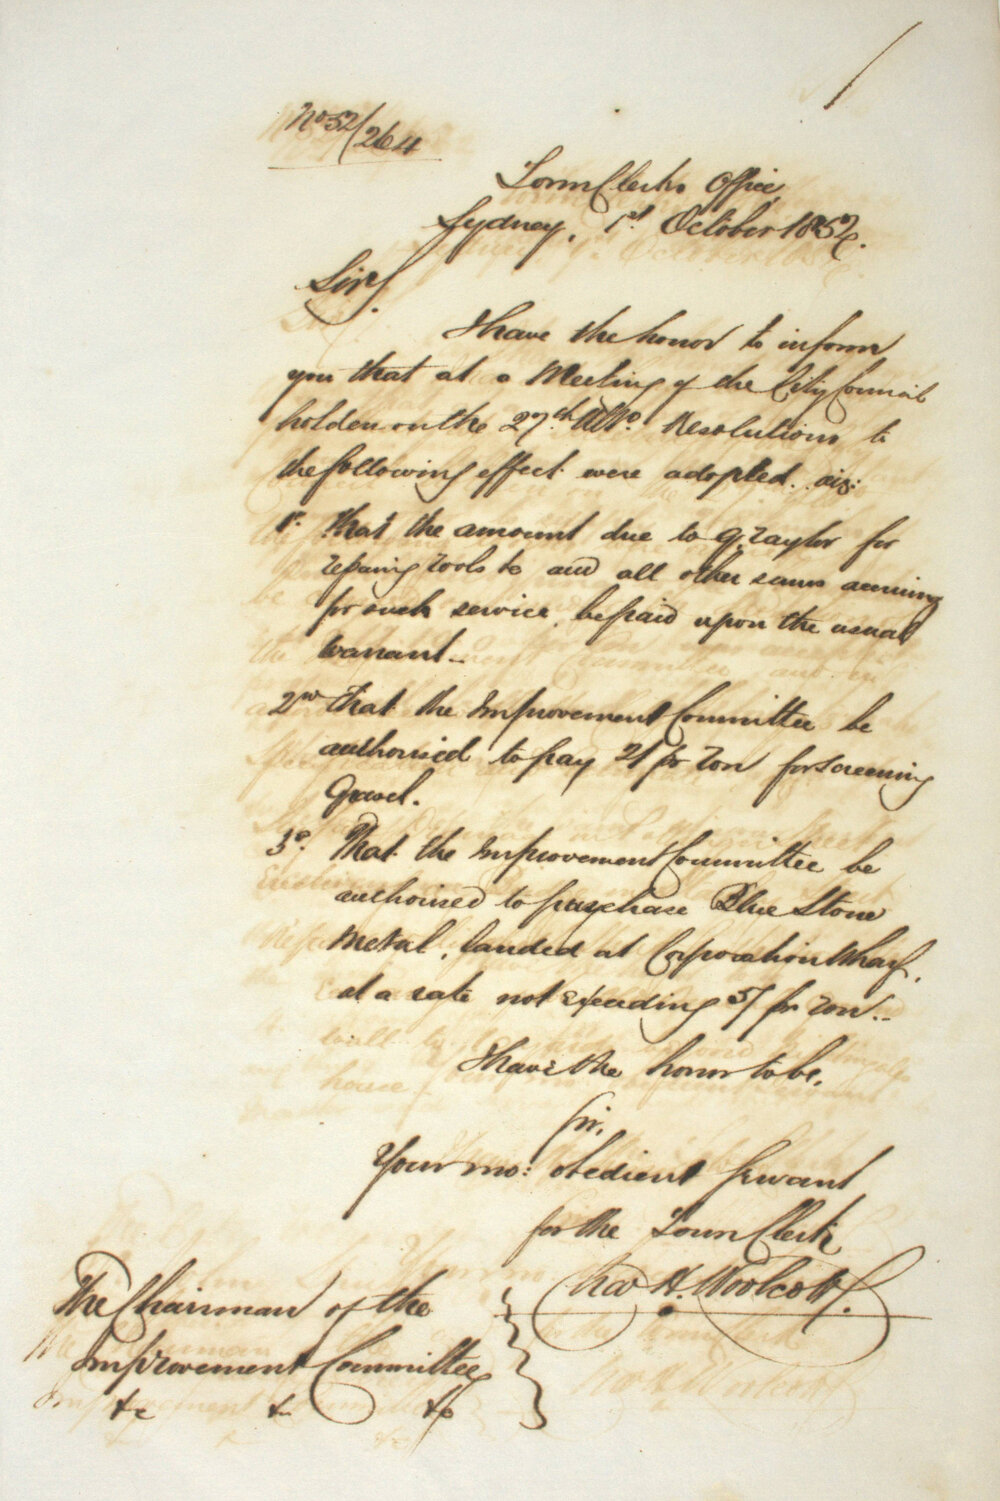 No 52/264
Town Clerks Office,
Sydney, 1st. October 1852.
Sir,
I have the honor to inform
you that at a Meeting of the City Council
holden on the 27th. Ulto. Resolutions to
the following effect were adopted. viz:
1o. That the amount due to G. Taylor for
repairing Tools &c and all other sums accruing
for such service, be paid upon the usual
warrant.
2nd That the Improvement Committee be
authorised to pay 2/ pr Ton for screening
Gravel.
3o. That the Improvement Committee be
authorised to purchase Blue Stone
Metal, landed at Corporation Wharf,
at a rate not exceeding 5/ pr Ton.
I have the honor to be,
Sir,
Your mo: obedient Servant
for the Town Clerk
Chas H. Woolcott.
The Chairman of the
Improvement Committee
&c &c &c